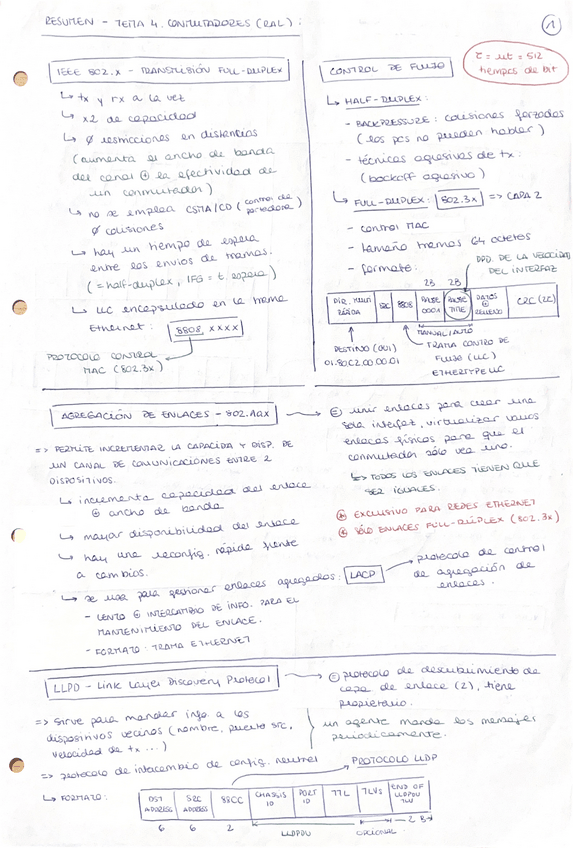 RESUMEN - TEMA 4. CONMUTADORES (RAL):
1
IEEE 802.x - TRANSMISIÓN FULL-DUPLEX
↳ tx y rx a la vez
↳ x2 de capacidad
↳ Ø restricciones en distancias
(aumenta el ancho de banda
del canal ⊕ la efectividad de
un conmutador)
↳ no se emplea CSMA/CD (control de portadora)
Ø colisiones
↳ hay un tiempo de espera
entre los envíos de tramas.
(= half-duplex, IFG = t. espera)
↳ UC encapsulado en la trama
Ethernet: 8808, xxxx
PROTOCOLO CONTROL
MAC (802.3x)
CONTROL DE FLUJO
τ = ut = 512
tiempos de bit
↳ HALF-DUPLEX:
- BACKPRESSURE: colisiones forzadas
(los pcs no pueden hablar)
- técnicas agresivas de tx:
(backoff agresivo)
↳ FULL-DUPLEX: 802.3x => CAPA 2
- control MAC
- tamaño tramas 64 octetos
- formato:
DPD. DE LA VELOCIDAD
DEL INTERFAZ
2B 2B
DIR. MULTI | SRC | 8808 | PAUSE 0001 | PAUSE TIME | DATOS ⊕ RELLENO | CRC (2C)
MANUAL/AUTO
DESTINO (OUI)
01.80.C2.00.00.01
TRAMA CONTROL DE
FLUJO (UC)
ETHERTYPE UC
AGREGACIÓN DE ENLACES - 802.1ax
=> PERMITE INCREMENTAR LA CAPACIDA Y DISP. DE
UN CANAL DE COMUNICACIONES ENTRE 2
DISPOSITIVOS.
↳ incrementa capacidad del enlace
⊕ ancho de banda
↳ mayor disponibilidad del enlace
↳ hay una reconfig. rápida frente
a cambios.
↳ se usa para gestionar enlaces agregados: LACP
protocolo de control
de agregación de
enlaces.
- LENTO ⊕ INTERCAMBIO DE INFO. PARA EL
MANTENIMIENTO DEL ENLACE.
- FORMATO: TRAMA ETHERNET
unir enlaces para crear una
sola interfaz, virtualizar varios
enlaces físicos para que el
conmutador sólo vea uno.
↳ TODOS LOS ENLACES TIENEN QUE
SER IGUALES.
⊛ EXCLUSIVO PARA REDES ETHERNET
⊛ SÓLO ENLACES FULL-DÚPLEX (802.3x)
LLPD - Link Layer Discovery Protocol
protocolo de descubrimiento de
capa de enlace (2), tiene
propietario.
=> Sirve para mandar info. a los
dispositivos vecinos (nombre, puerto src,
velocidad de tx ...)
un agente manda los mensajes
periódicamente.
=> protocolo de intercambio de config. neutral
PROTOCOLO LLDP
↳ FORMATO:
DST ADDRESS | SRC ADDRESS | 88CC | CHASSIS ID | PORT ID | TTL | TLVs | END OF LLDPDU TLV
6 6 2 LLDPDU OPCIONAL 2 B